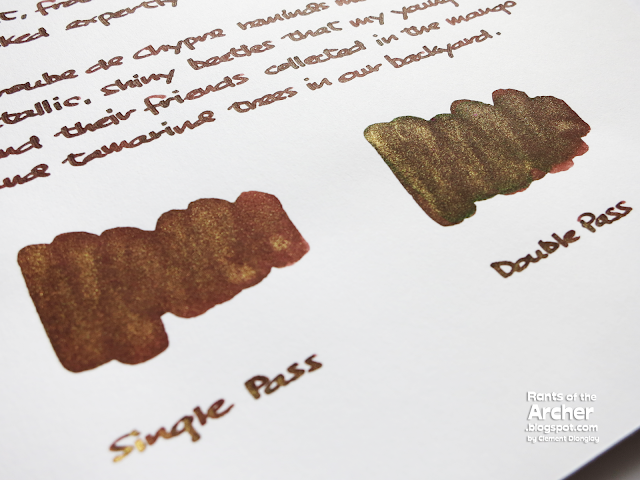 ked expertly
de Chypre reminds
tallic, shiny beetles that my young
and their friends collected in the mango
and tamarine trees in our backyard.
Double Pass
Single Pass
Rants of the
Archer
.blogspot.com
by Clement Dionglay